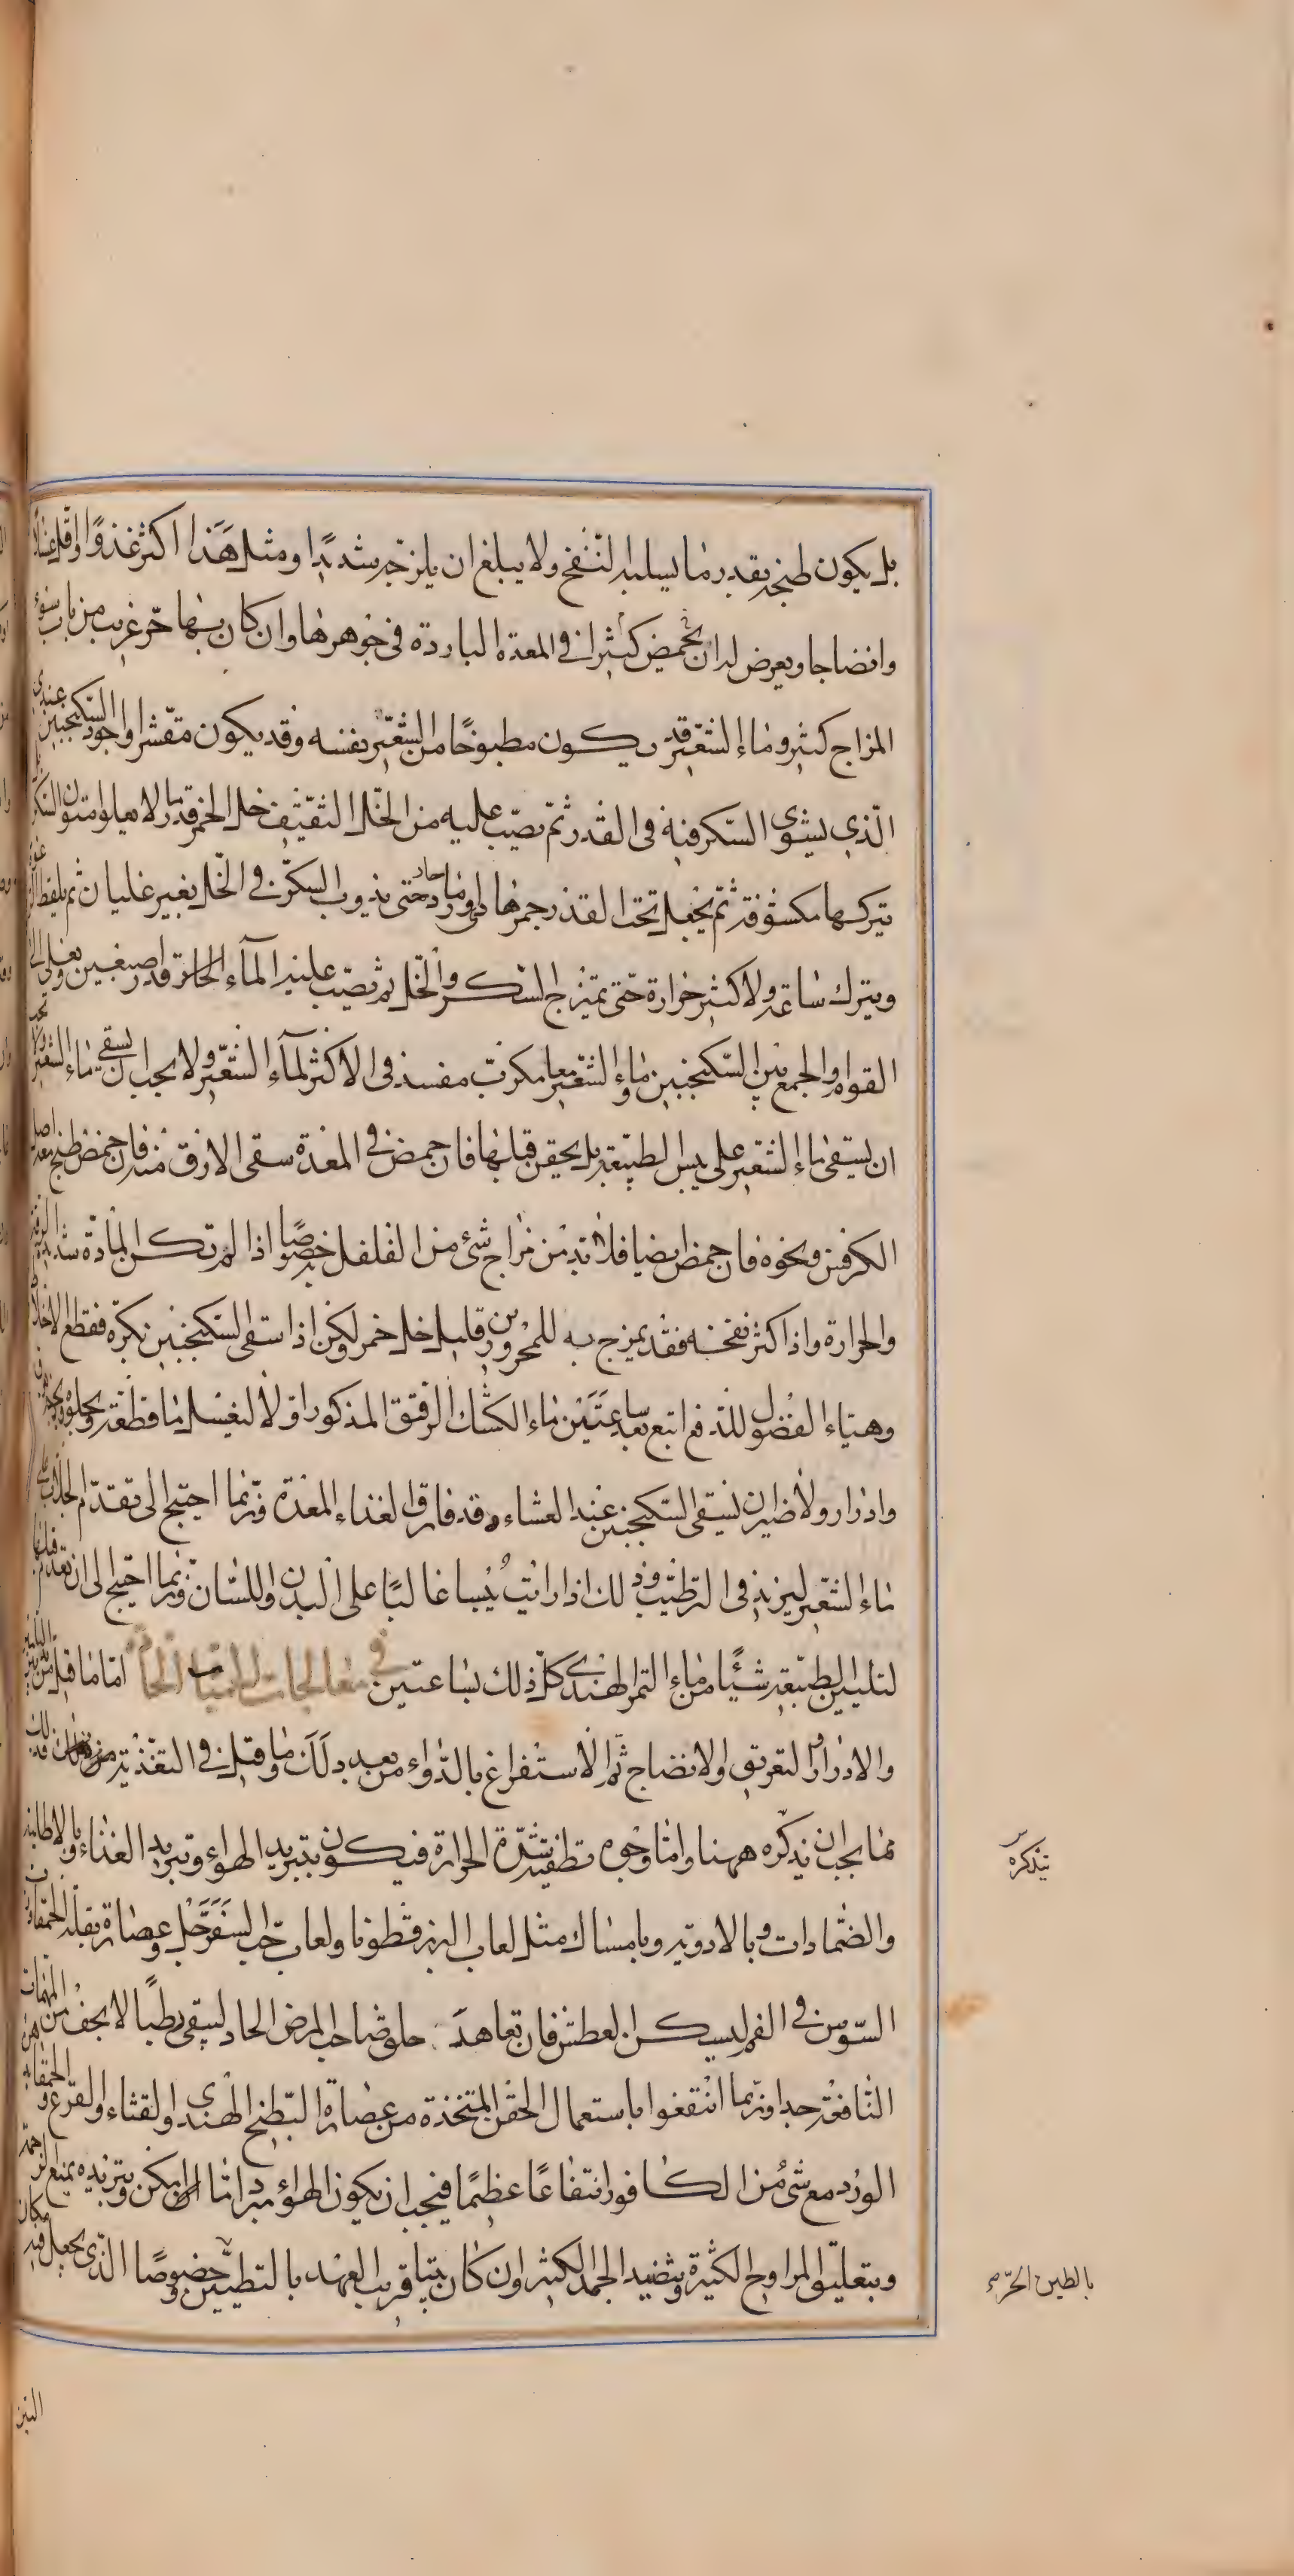 بل يكون طبخه بقدر ما يسلبه النفخ ولا يبلغ ان يلزجه شديدا ومثل هذا اكثر غذوا واقل غسلا
وانضاجا ويعرض له ان يحمض كثيرا في المعدة الباردة في جوهرها وان كان بها حر غريب من باب سوء
المزاج كثير وماء الشعير قد يكون مطبوخا من الشعير نفسه وقد يكون مقشرا واجود السكنجبين عندى
الذي يسوى السكر فيه في القدر ثم يصب عليه من الخل الثقيف خل الخمر قدر ما لا يعلو متون السكر
يتركها مكشوفة ثم يجعل تحت القدر جمر هادى او رماد حار حتى يذوب السكر في الخل بغير غليان ثم يلقط
ويترك ساعة ولا كثير حرارة حتى يمتزج السكر والخل ثم يصب عليه الماء الحار قدر اصبعين ويغلى الى
القوام والجمع بين السكنجبين وماء الشعير معا مكرب مفسد في الاكثر لماء الشعير ولا يجب ان يسقى ماء الشعير
ان يسقى ماء الشعير على يبس الطبيعة بل يحقن قبلها فان حمض في المعدة سقى الارق منه فان حمض طبخ معه اصل
الكرفس ونحوه فان حمض ايضا فلا بد من مزاج شئ من الفلفل خصوصا اذا لم تكن المادة شديدة الرقة
والحرارة واذا كثر نفخه فقد يمزج به للمحرورين قليل خل خمر ولكن اذا سقى السكنجبين بكرة فقطع الاخلاط
وهياء الفضول للدفع اتبع بعد ساعتين ماء الكشك الرقيق المذكور اولا ليغسل ما قطعه ويجلوه
وادرار ولا ضير ان يسقى السكنجبين عند العشاء وقد فارق الغذاء المعدة وربما احتيج الى تقديم الجلاب على
ماء الشعير ليزيد في الترطيب وذلك اذا رايت يبسا غالبا على البدن واللسان وربما احتيج الى ان تقدم قبلها
لتليين الطبيعة شيئا من ماء التمر الهندى كل ذلك بساعتين في معالجات الحميات الحادة اما ما قيل من
والادرار والتعريق والانضاج ثم الاستفراغ بالدواء من بعد ذلك وما قيل في التغذية
مما يجب ان يذكره ههنا واما وجوه تطفية شدة الحرارة فيكون بتبريد الهواء وتبريد الغذاء وبالاطلية
والضمادات وبالادوية وبامساك مثل لعاب البزرقطونا ولعاب حب السفرجل وعصارة بقلة الحمقاء
السوس في الفم ليسكن العطش فان تعاهد حلق صاحب المرض الحاد ليبقى رطبا لا يجف من المهمات
النافعة جدا وربما انتفعوا باستعمال الحقن المتخذة من عصارة البطيخ الهندى والقثاء والقرع والحمقاء
الورد مع شئ من الكافور انتفاعا عظيما فيجب ان يكون الهواء مبردا ما امكن وتبريده بمنع الزحمة
وبتعليق المراوح الكثيرة وتنضيد الجمد الكثير وان كان بيتا قريب العهد بالتطيين وخصوصا الذى يجعل فيه مكان
نذكره
بالطين الحر
التبن